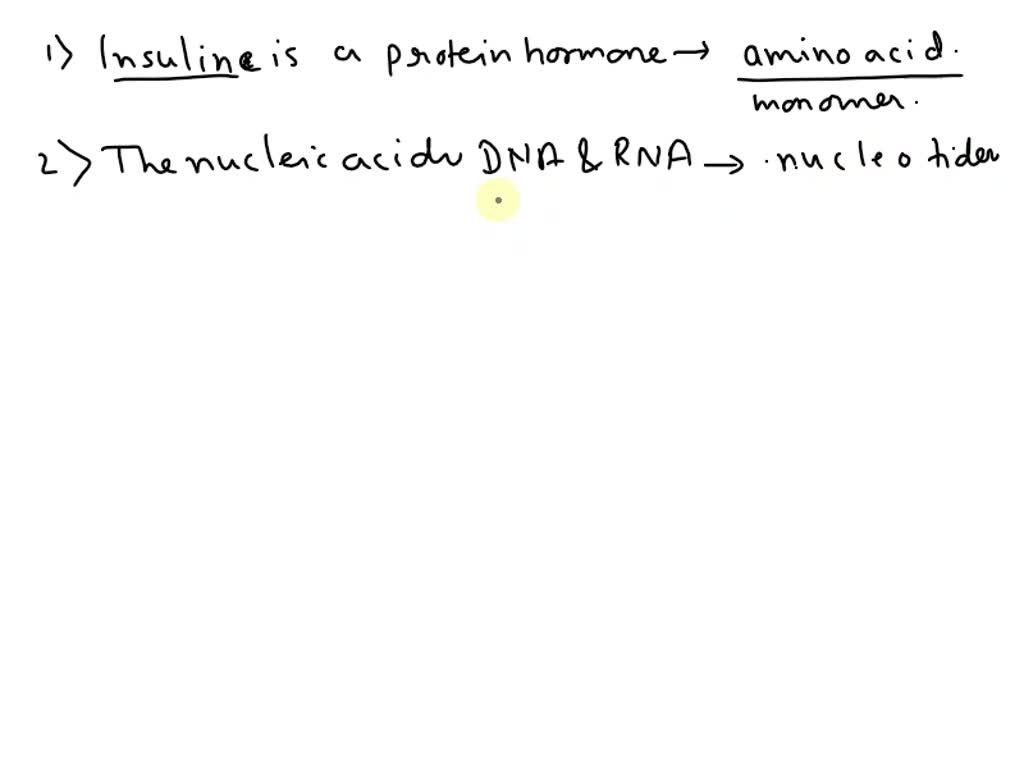 1) Insuline is a protein hormone → amino acid.
monomer.
2) The nucleic acids DNA & RNA → .nucleotides